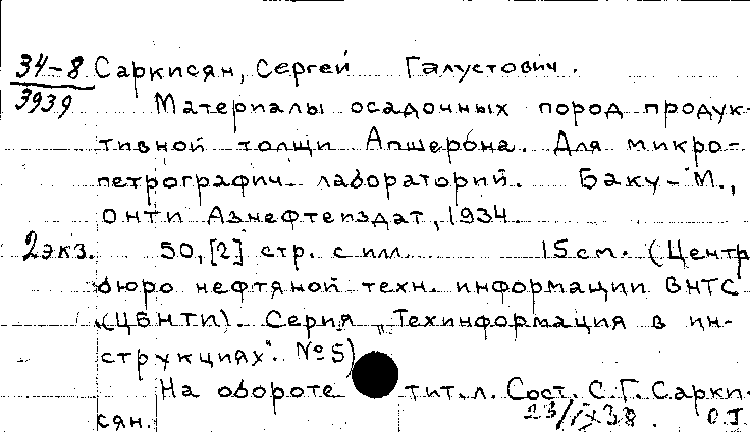 34-8 Саркисян, Сергей Галустович.
3939 Материалы осадочных пород продук-
тивной толщи Апшерона. Для микро-
петрографич. лабораторий. Баку-М.,
ОНТИ Азнефтеиздат, 1934.
2экз. 50,[2] стр. с илл. 15см. (Центр
бюро нефтяной техн. информации ВНТС
(ЦБНТИ). Серия "Техинформация в ин-
струкциях". №5)
На обороте тит. л. Сост. С.Г. Сарки-
сян. 23/IX 38.